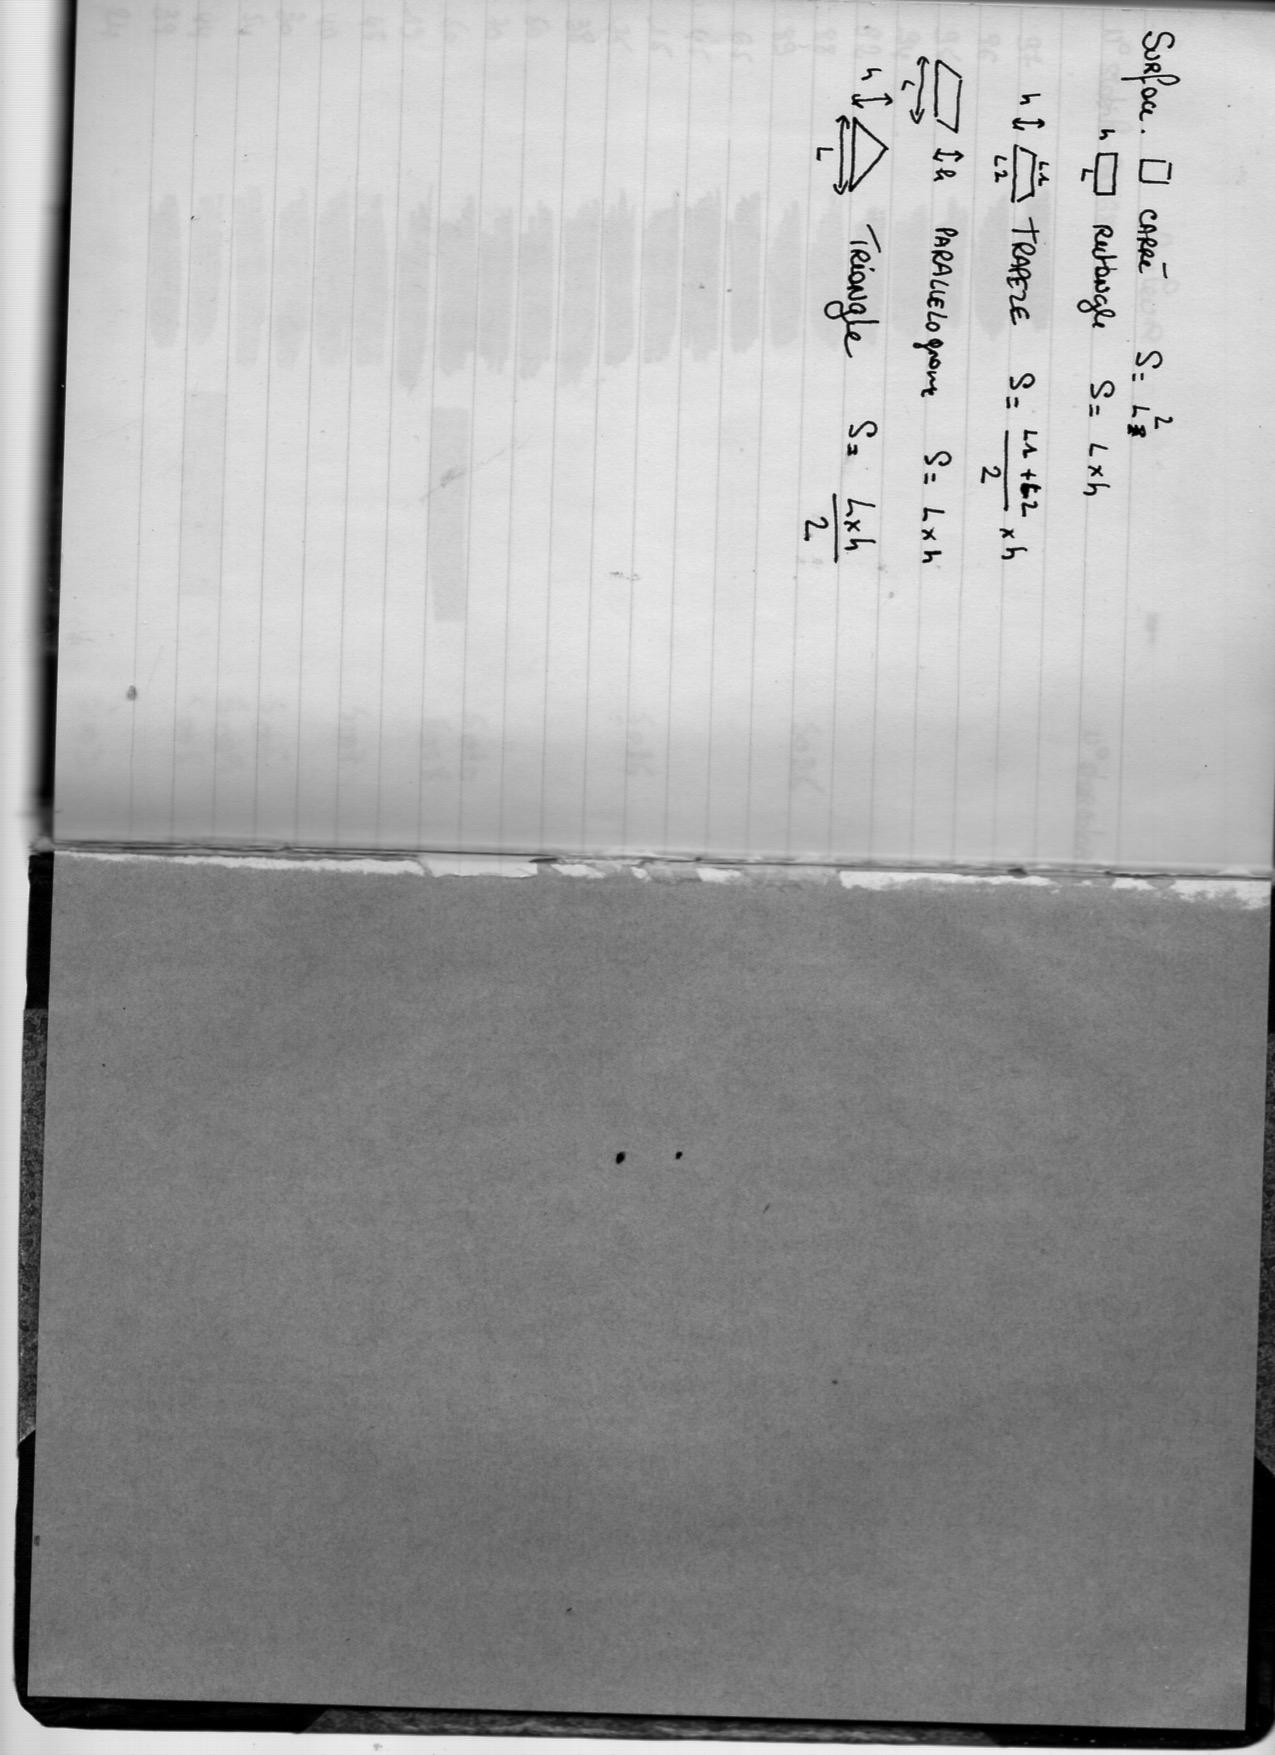 Surface. CARRE S = L²
h L Rectangle S = L x h
h L1 L2 TRAPEZE S = L1 + L2 / 2 x h
L h PARALLELOgrame S = L x h
h L TRiangle S = L x h / 2